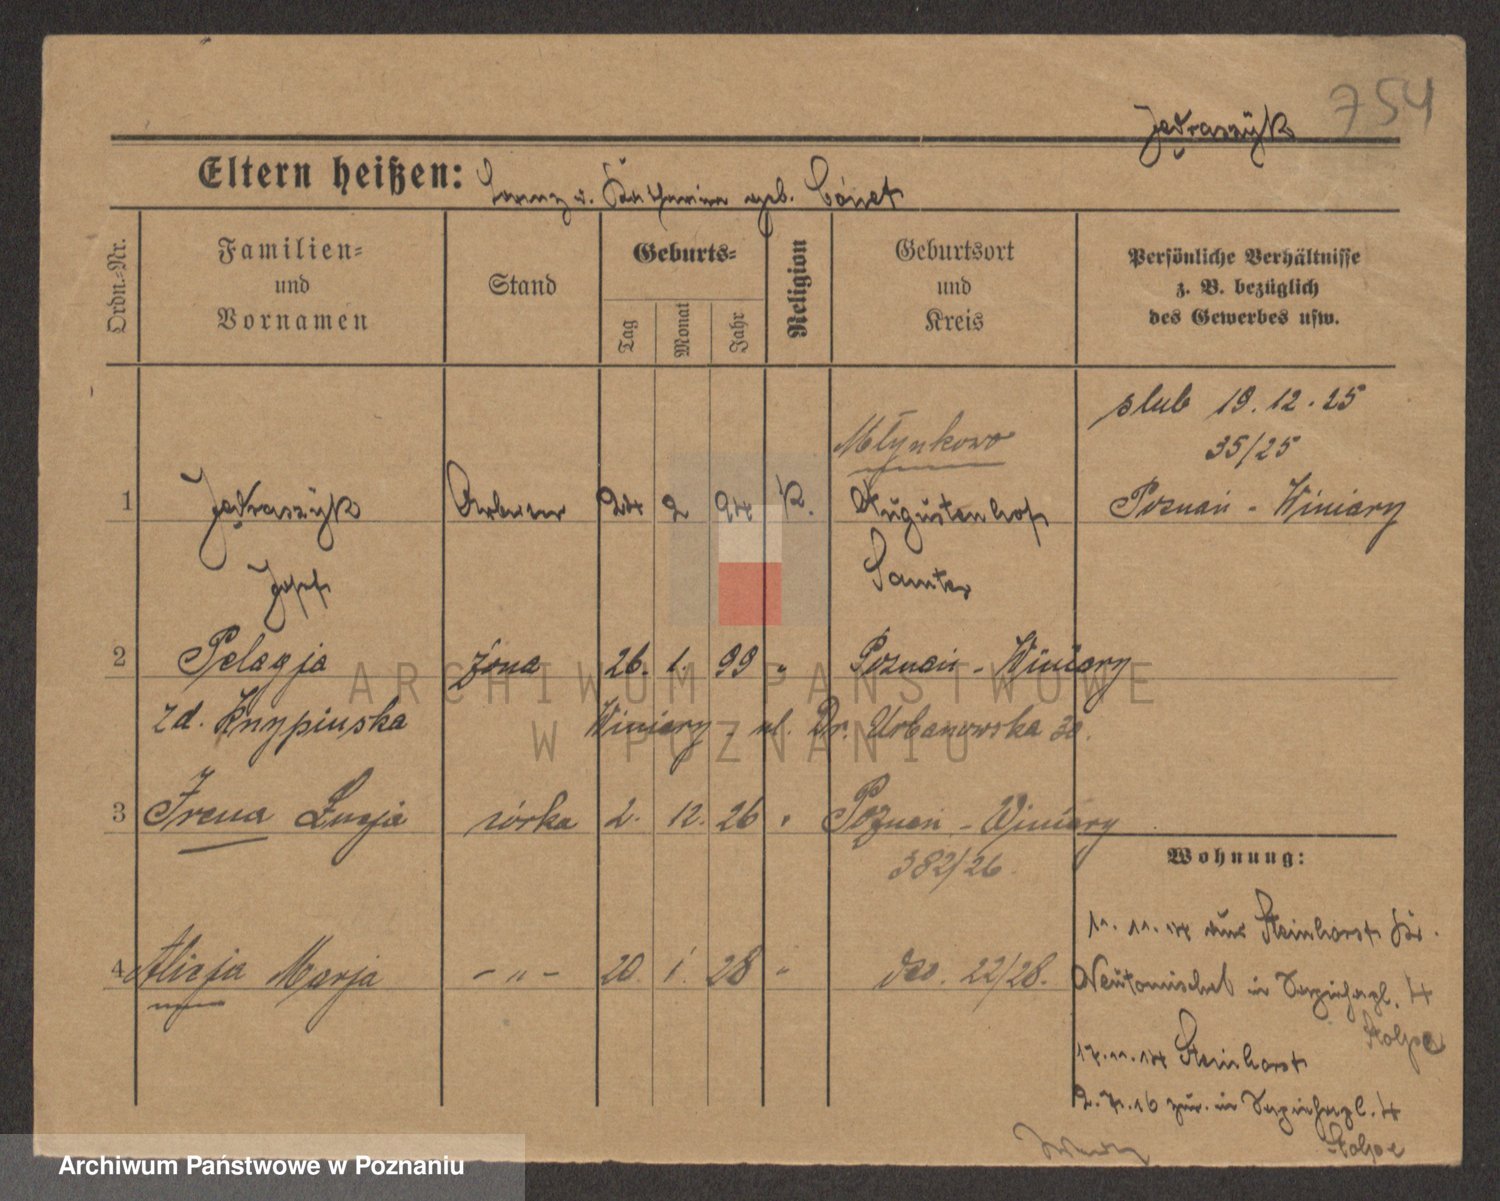 754
Jędraszyk
Eltern heißen: Lorenz u. Katharina geb.
Ordn.-Nr.
Familien- und Vornamen
Stand
Geburts-
Tag
Monat
Jahr
Religion
Geburtsort und Kreis
Persönliche Verhältnisse
z. B. bezüglich
des Gewerbes usw.
ślub 19.12.25
35/25
Poznań - Winiary
Młynkowo
1 Jędraszyk Arbeiter 24 2 94 K. Augustenhof
Josef Samter
2 Pelagja żona 26. 1. 99 " Poznań - Winiary
zd. Knypinska Winiary - ul. Dr. Urbanowska 30.
3 Irena Łucja córka 2. 12. 26 " Poznań - Winiary
382/26
4 Alicja Marja - " - 20. 1. 28 " dto. 22/28.
Wohnung:
11.11.14 aus Steinhorst Kr.
Neutomischel in 4
Stolpe
17.11.14 Steinhorst
2.7.16 zur. in 4
Stolpe
ARCHIWUM PAŃSTWOWE
W POZNANIU
Archiwum Państwowe w Poznaniu